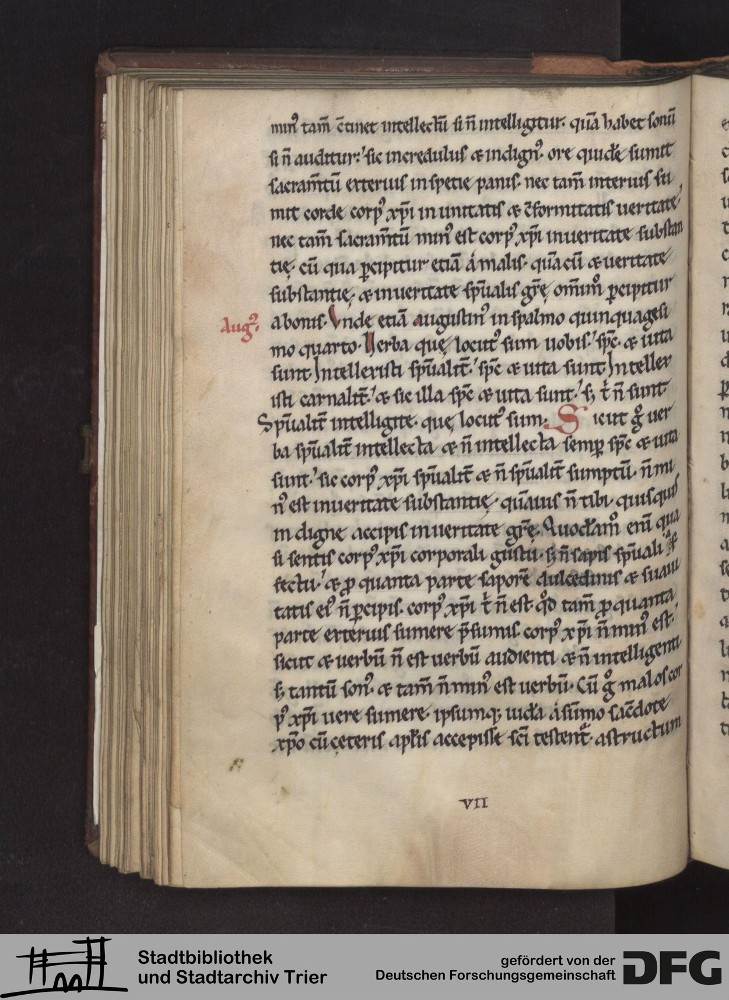 min᷒ tam̄ c̄tinet intellectū si n̄ intelligitur. quā habet sonū
si n̄ auditur. sic incredulus & indign᷒ ore quidē sumit
sacram̄tū exterius in specie panis. nec tam̄ interius su
mit corde corp᷒ xp̄i in unitatis & c̄formitatis ueritate.
nec tam̄ sacram̄tū min᷒ est corp᷒ xp̄i in ueritate substan
tię. cū qua p̱cipitur etiā a malis. quā cū & ueritate
substantię. & in ueritate sp̄ualis grę̄ om̄iu᷒ p̱cipitur
Aug᷒.
a bonis. Vnde etiā augustin᷒ in spalmo quinquagesi
mo quarto. Verba quę locut᷒ sum uobis. sp̄c. & uita
sunt. Intellexisti sp̄ualit̄. sp̄c & uita sunt. Intellex
isti carnalit̄. & sic illa sp̄c & uita sunt. s; t̄ n̄ sunt.
Sp̄ualit̄ intelligite. quę locut᷒ sum. Sicut g͛ uer
ba sp̄ualit̄ intellecta & n̄ intellecta semp̱ sp̄c & uita
sunt. sic corp᷒ xp̄i sp̄ualit̄ & n̄ sp̄ualit̄ sumptū. n̄ mi
n᷒ est in ueritate substantię. quāuis n̄ tibi. quisquis
indigne accipis in ueritate grę̄. Quodam᷒ eni̅ qua
si sentis corp᷒ xp̄i corporali gustu. s; n̄ sapis sp̄uali af
fectu. & p̱ quanta parte saporē dulcedinis & suaui
tatis ei᷒ n̄ p̱cipis. corp᷒ xp̄i t̄ n̄ est. qd̄ tam̄ p̱ quanta
parte exterius sumere p̄sumis corp᷒ xp̄i n̄ min᷒ est.
sicut & uerbū n̄ est uerbū audienti & n̄ intelligenti.
s; tantū son᷒. & tam̄ n̄ min᷒ est uerbū. Cū g͛ malos cor
p᷒ xp̄i uere sumere. ipsumq; iudā a sūmo sac̄dote
xp̄o cū ceteris ap̄lis accepisse sc̄i testent᷑. astructum
VII
Stadtbibliothek
und Stadtarchiv Trier
gefördert von der
Deutschen Forschungsgemeinschaft
DFG